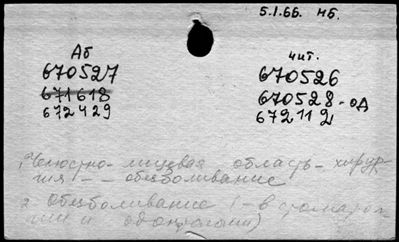 5.I.66. мб.
Аб
670527
671618
672429
чит.
670526
670528-од
672112
1. Челюстно-лицевая область - хирур-
гия - - обезболивание
2. Обезболивание (- в стоматоло
гии и одонтологии)